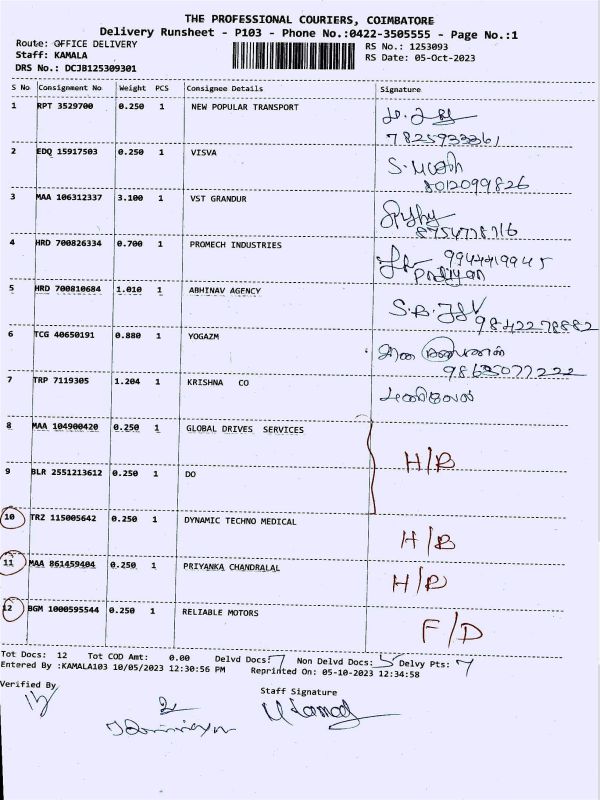 THE PROFESSIONAL COURIERS, COIMBATORE
Delivery Runsheet - P103 - Phone No.:0422-3505555 - Page No.:1
Route: OFFICE DELIVERY RS No.: 1253093
Staff: KAMALA RS Date: 05-Oct-2023
DRS No.: DCJB125309301
S No Consignment No Weight PCS Consignee Details Signature
1 RPT 3529700 0.250 1 NEW POPULAR TRANSPORT
7825933361
2 EDQ 15917503 0.250 1 VISVA
8012099826
3 MAA 106312337 3.100 1 VST GRANDUR
8754778716
4 HRD 700826334 0.700 1 PROMECH INDUSTRIES 9944419945
5 HRD 700810684 1.010 1 ABHINAV AGENCY
9842278882
6 TCG 40650191 0.880 1 YOGAZM
9865077222
7 TRP 7119305 1.204 1 KRISHNA CO
8 MAA 104900420 0.250 1 GLOBAL DRIVES SERVICES
H/B
9 BLR 2551213612 0.250 1 DO
10 TRZ 115005642 0.250 1 DYNAMIC TECHNO MEDICAL
H/B
11 MAA 861459404 0.250 1 PRIYANKA CHANDRALAL
H/B
12 BGM 1000595544 0.250 1 RELIABLE MOTORS
F/D
Tot Docs: 12 Tot COD Amt: 0.00 Delvd Docs: 7 Non Delvd Docs: 5 Delvy Pts: 7
Entered By :KAMALA103 10/05/2023 12:30:56 PM Reprinted On: 05-10-2023 12:34:58
Verified By Staff Signature